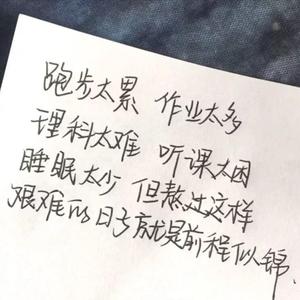 跑步太累 作业太多
理科太难 听课太困
睡眠太少 但熬过这样
艰难的日子就是前程似锦.